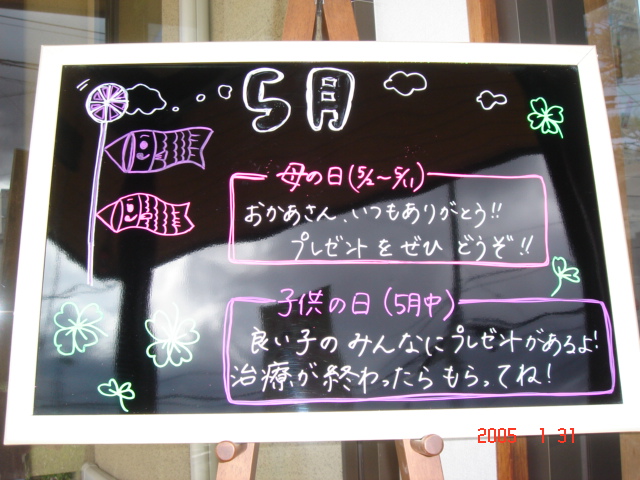 5月
母の日(5/2～5/11)
おかあさん、いつもありがとう!!
プレゼントをぜひどうぞ!!
子供の日(5月中)
良い子のみんなにプレゼントがあるよ!
治療が終わったらもらってね!
2005 1 31